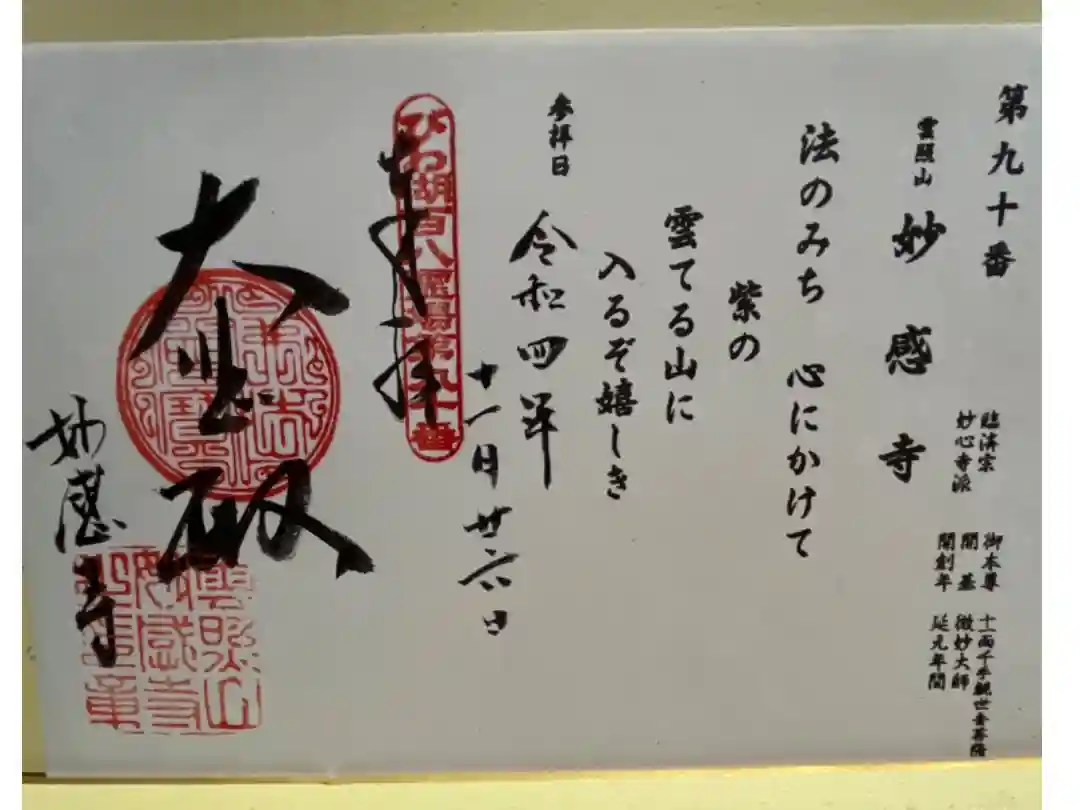 第九十番
雲照山 妙感寺
臨済宗
妙心寺派
御本尊 十一面千手観世音菩薩
開基 微妙大師
開創年 延元年間
法のみち 心にかけて
紫の
雲てる山に
入るぞ嬉しき
参拝日 令和四年
十一月廿六日
奉拝
びわ湖百八霊場第九十番
大悲殿
妙感寺
照山
妙感寺